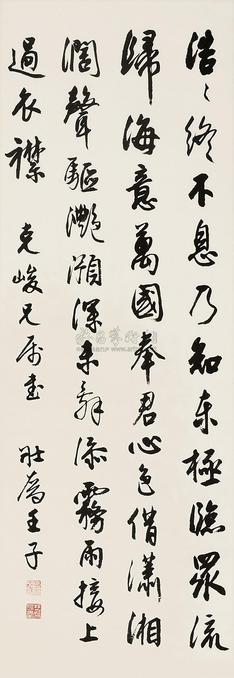 浩〻终不息乃知东极临众流
归海意万国奉君心色借潇湘
阔声驱滟滪深未辞添雾雨接上
过衣襟 克峻兄属书 壮为王子